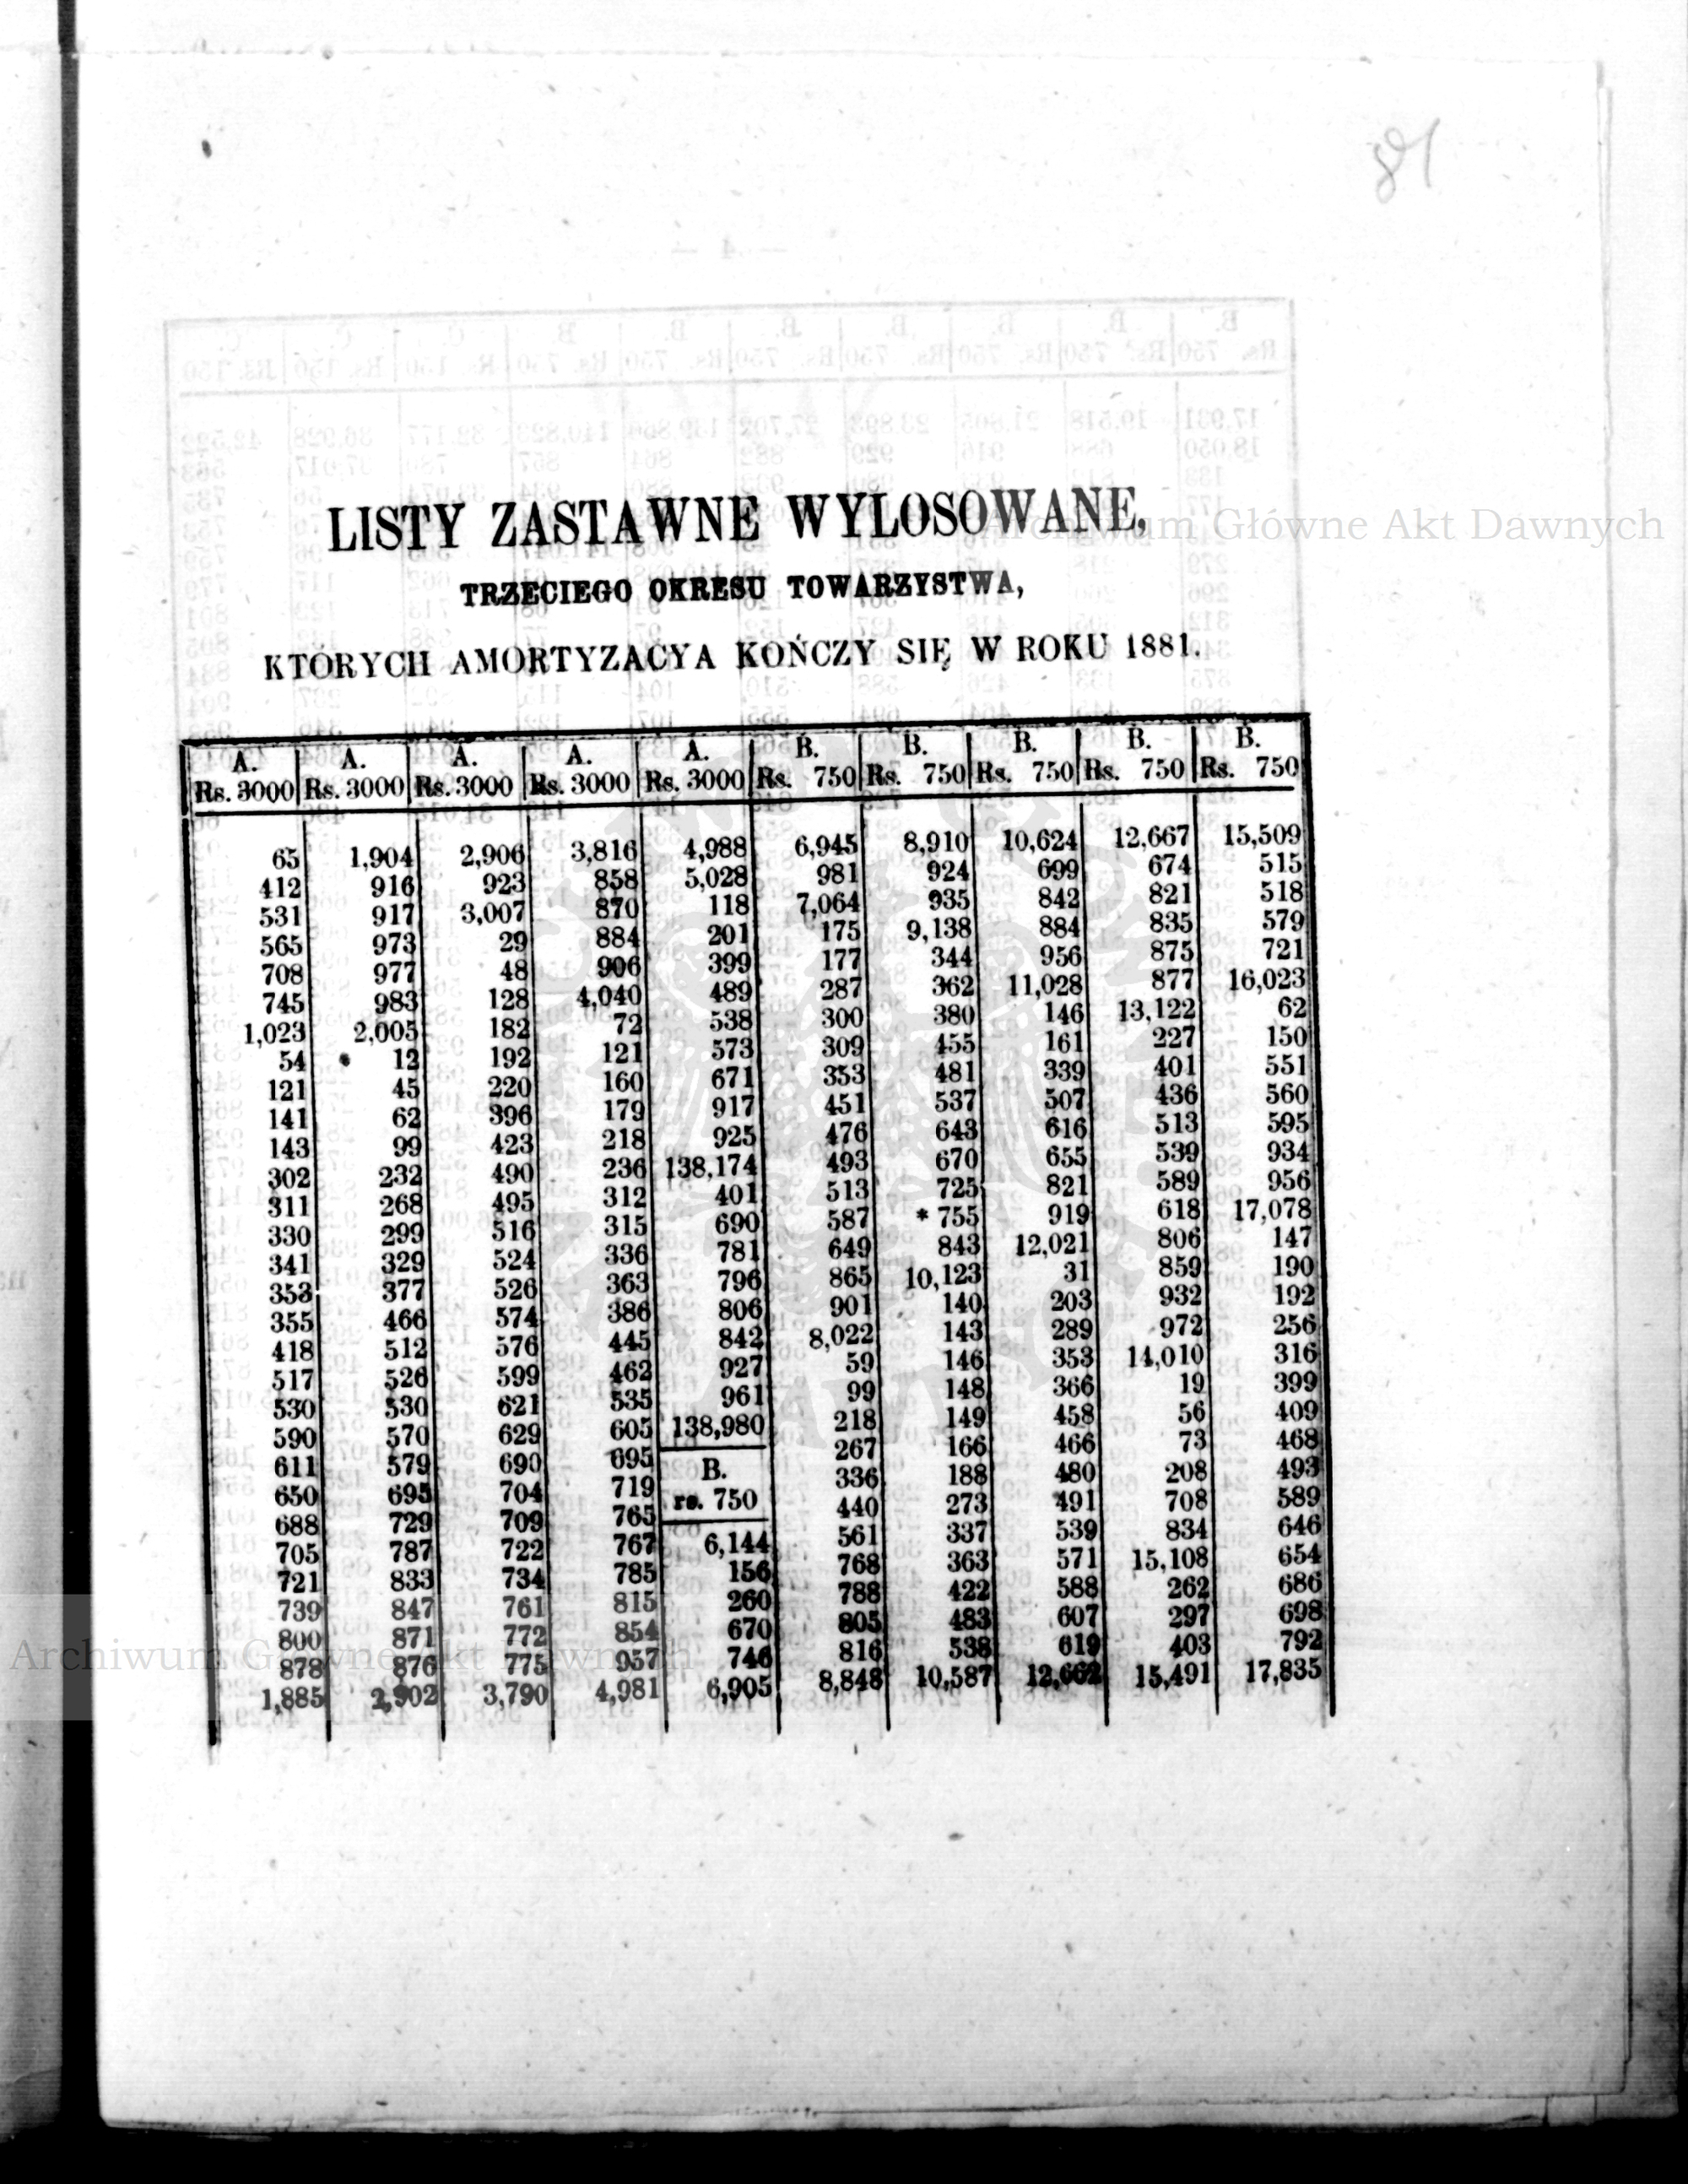 81
LISTY ZASTAWNE WYLOSOWANE,
Archiwum Główne Akt Dawnych
TRZECIEGO OKRESU TOWARZYSTWA,
KTÓRYCH AMORTYZACYA KOŃCZY SIĘ W ROKU 1881.
A. A. A. A. A. B. B. B. B. B.
Rs. 3000 Rs. 3000 Rs. 3000 Rs. 3000 Rs. 3000 Rs. 750 Rs. 750 Rs. 750 Rs. 750 Rs. 750
65 1,904 2,906 3,816 4,988 6,945 8,910 10,624 12,667 15,509
412 916 923 858 5,028 981 924 699 674 515
531 917 3,007 870 118 7,064 935 842 821 518
565 973 29 884 201 175 9,138 884 835 579
708 977 48 906 399 177 344 956 875 721
745 983 128 4,040 489 287 362 11,028 877 16,023
1,023 2,005 182 72 538 300 380 146 13,122 62
54 12 192 121 573 309 455 161 227 150
121 45 220 160 671 353 481 339 401 551
141 62 396 179 917 451 537 507 436 560
143 99 423 218 925 476 643 616 513 595
302 232 490 236 138,174 493 670 655 539 934
311 268 495 312 401 513 725 821 589 956
330 299 516 315 690 587 * 755 919 618 17,078
341 329 524 336 781 649 843 12,021 806 147
353 377 526 363 796 865 10,123 31 859 190
355 466 574 386 806 901 140 203 932 192
418 512 576 445 842 8,022 143 289 972 256
517 526 599 462 927 59 146 353 14,010 316
530 530 621 535 961 99 148 366 19 399
590 570 629 605 138,980 218 149 458 56 409
611 579 690 695 B. 267 166 466 73 468
650 695 704 719 rs. 750 336 188 480 208 493
688 729 709 765 440 273 491 708 589
705 787 722 767 6,144 561 337 539 834 646
721 833 734 785 156 768 363 571 15,108 654
739 847 761 815 260 788 422 588 262 686
800 871 772 854 670 805 483 607 297 698
878 876 775 957 746 816 538 619 403 792
1,885 2,902 3,790 4,981 6,905 8,848 10,587 12,662 15,491 17,835
Archiwum Główne Akt Dawnych